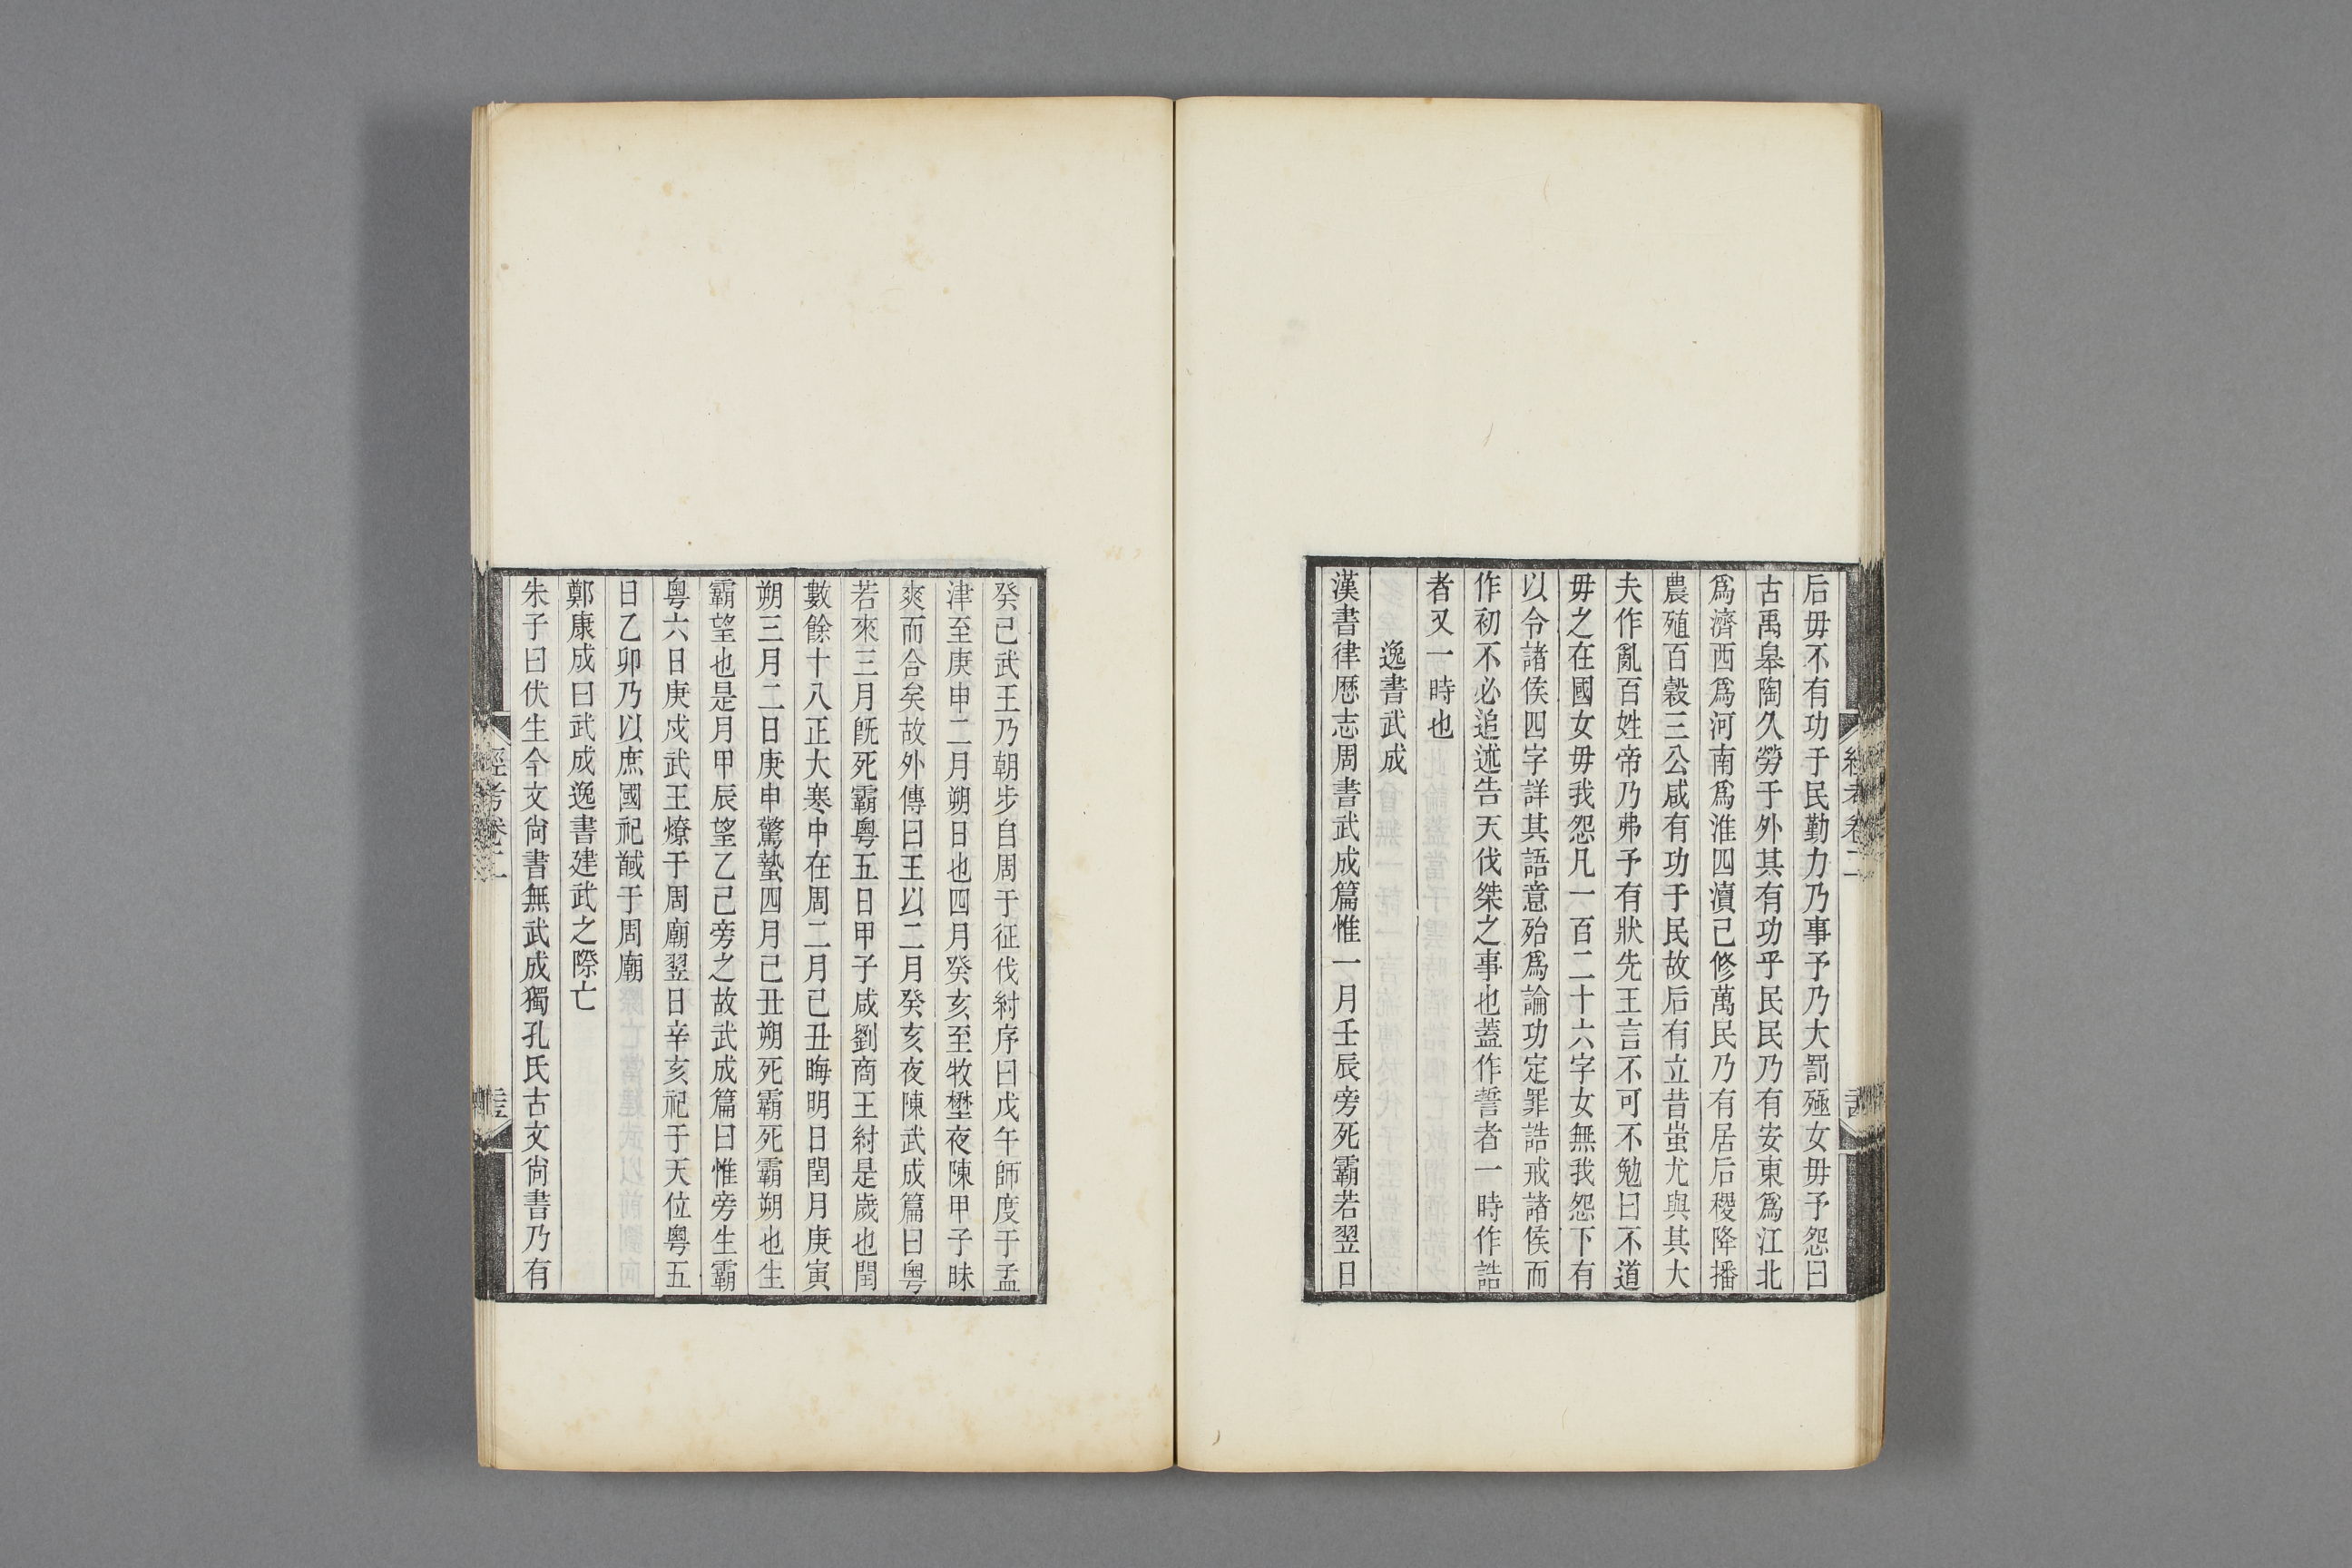 后毋不有功于民勤力乃事予乃大罰殛女毋予怨曰
古禹皋陶久勞于外其有功乎民民乃有安東爲江北
爲濟西爲河南爲淮四瀆已修萬民乃有居后稷降播
農殖百穀三公咸有功于民故后有立昔蚩尤與其大
夫作亂百姓帝乃弗予有狀先王言不可不勉曰不道
毋之在國女毋我怨凡一百二十六字女無我怨下有
以令諸侯四字詳其語意殆爲論功定罪誥戒諸侯而
作初不必追述告天伐桀之事也蓋作誓者一時作誥
者又一時也
逸書武成
漢書律厯志周書武成篇惟一月壬辰旁死霸若翌日
經考卷二
癸己武王乃朝步自周于征伐紂序曰戊午師度于孟
津至庚申二月朔日也四月癸亥至牧壄夜陳甲子昧
爽而合矣故外傳曰王以二月癸亥夜陳武成篇曰粵
若來三月旣死霸粵五日甲子咸劉商王紂是歲也閏
數餘十八正大寒中在周二月己丑晦明日閏月庚寅
朔三月二日庚申驚蟄四月己丑朔死霸死霸朔也生
霸望也是月甲辰望乙己旁之故武成篇曰惟旁生霸
粵六日庚戍武王燎于周廟翌日辛亥祀于天位粵五
日乙卯乃以庶國祀馘于周廟
鄭康成曰武成逸書建武之際亡
朱子曰伏生今文尙書無武成獨孔氏古文尙書乃有
經考卷二